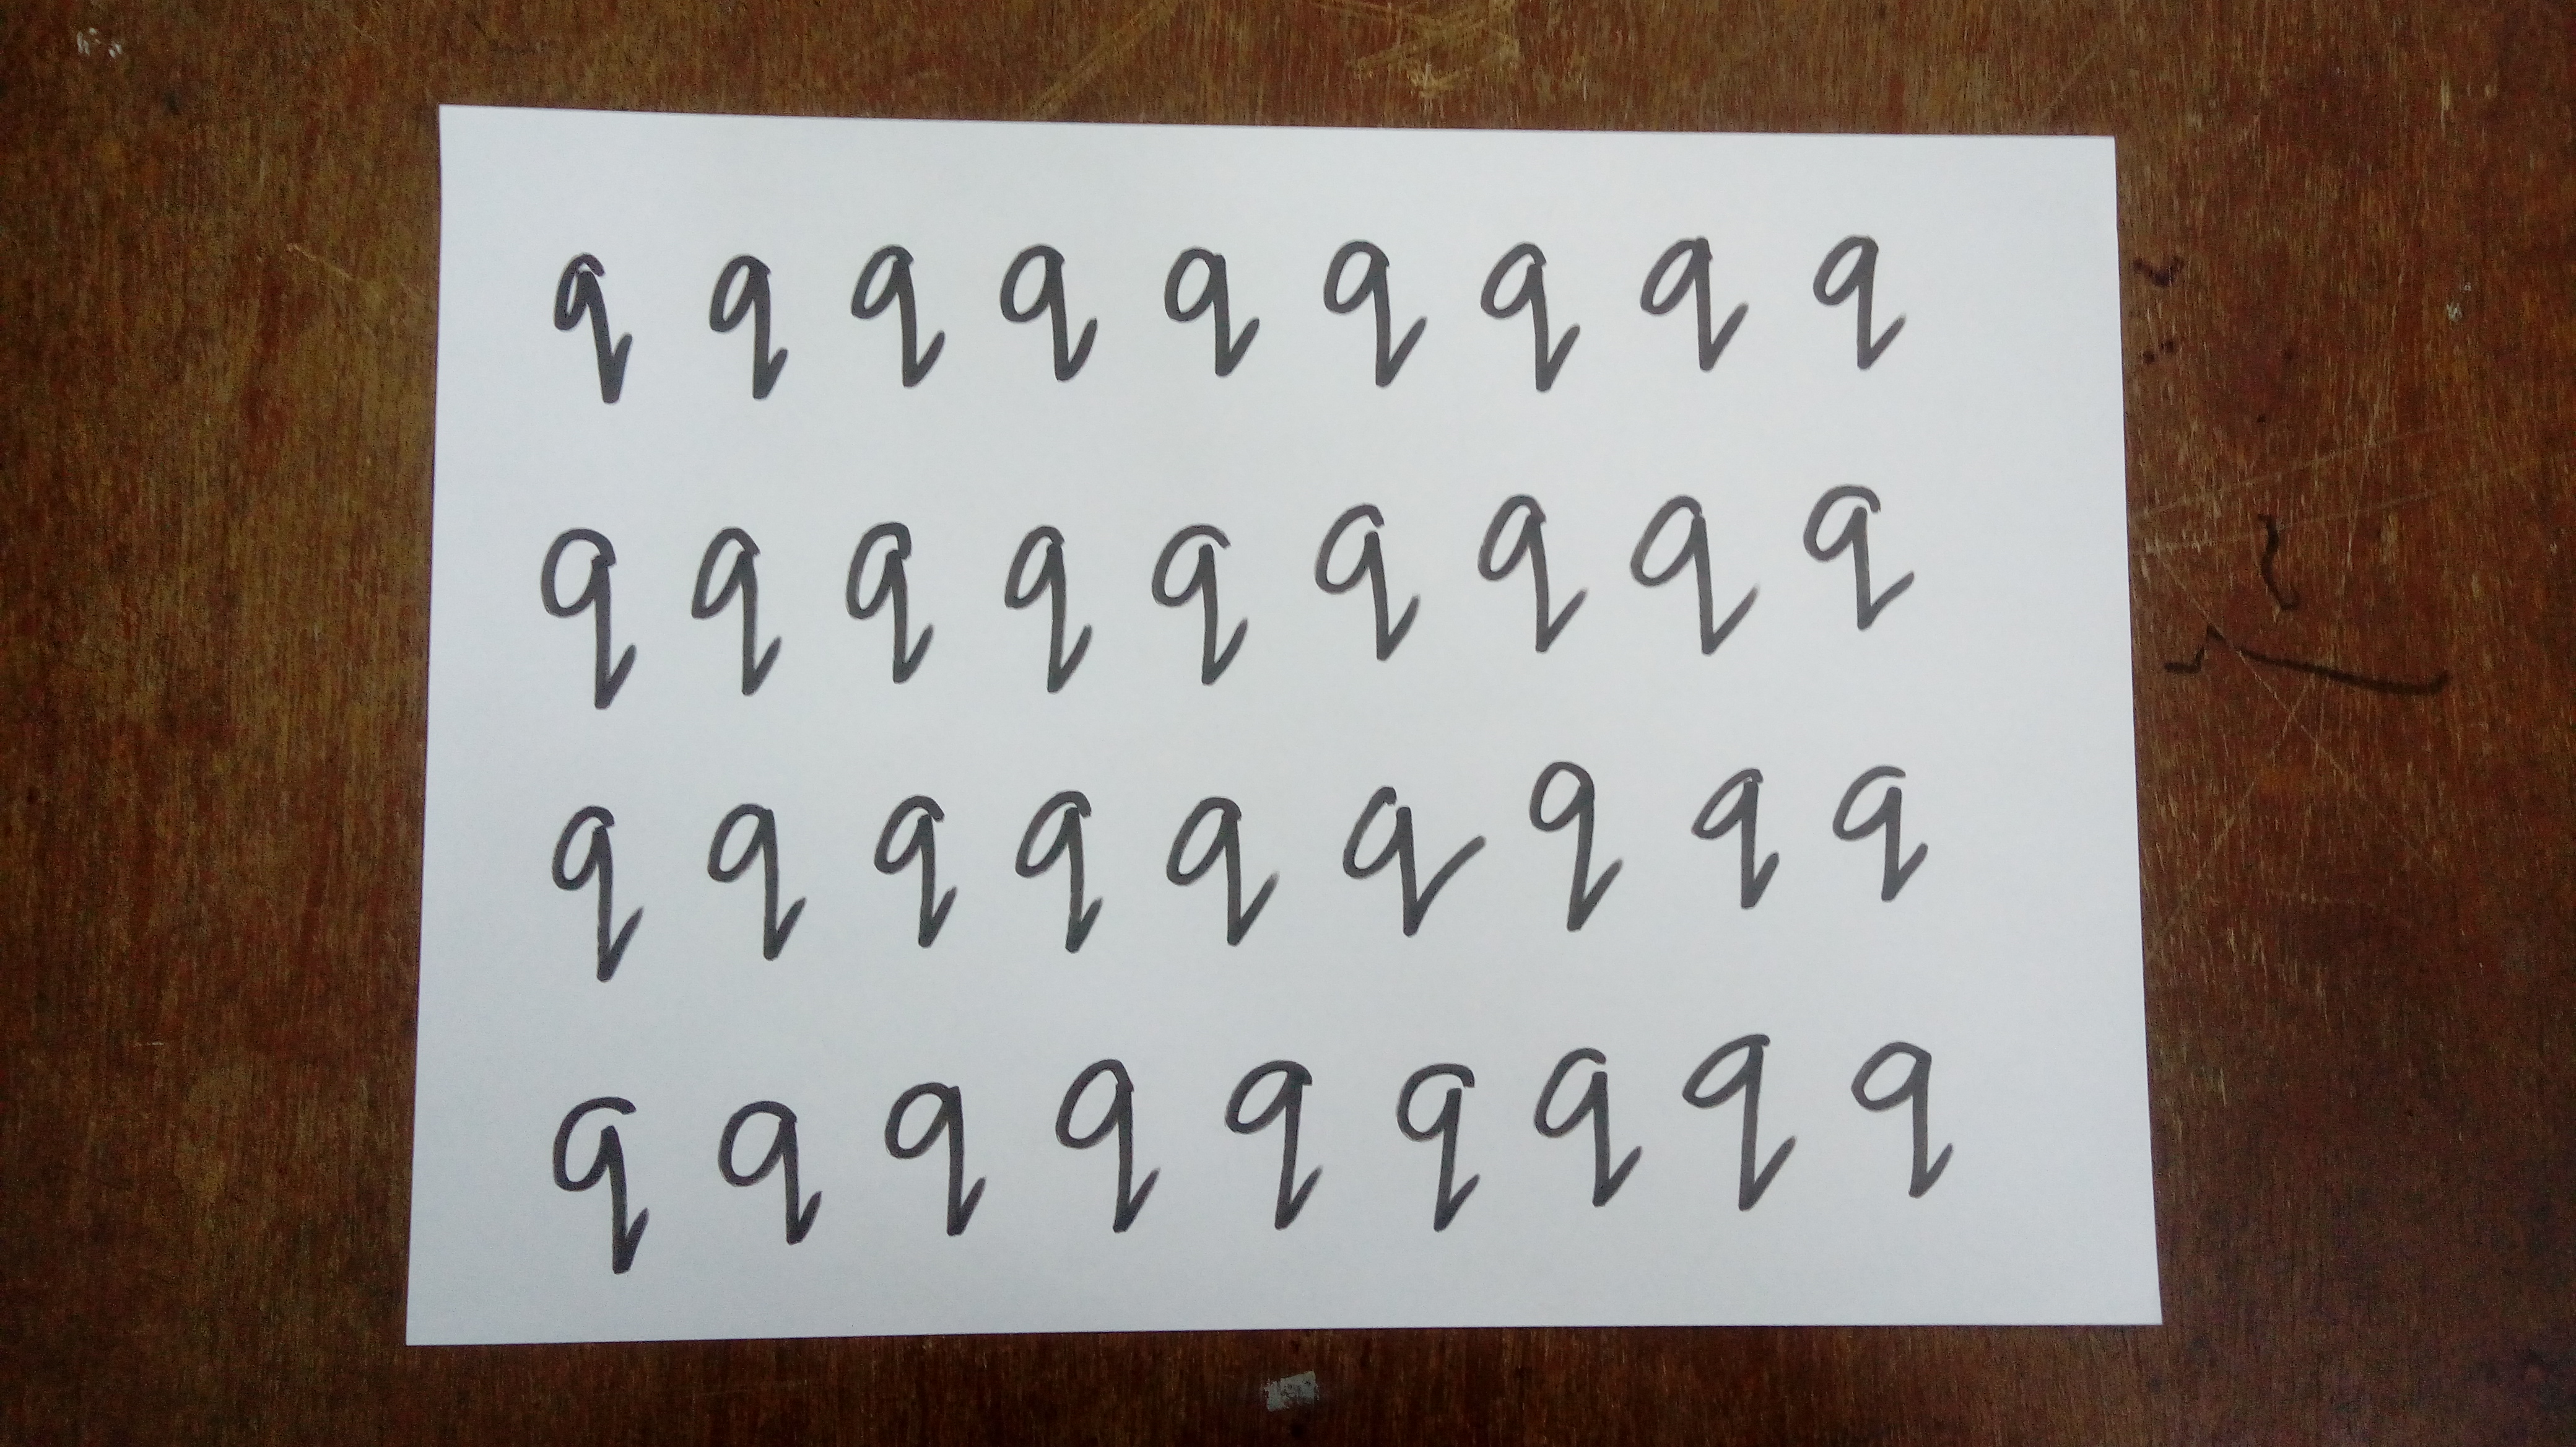 q q q q q q q q q
q q q q q q q q q
q q q q q q q q q
q q q q q q q q q